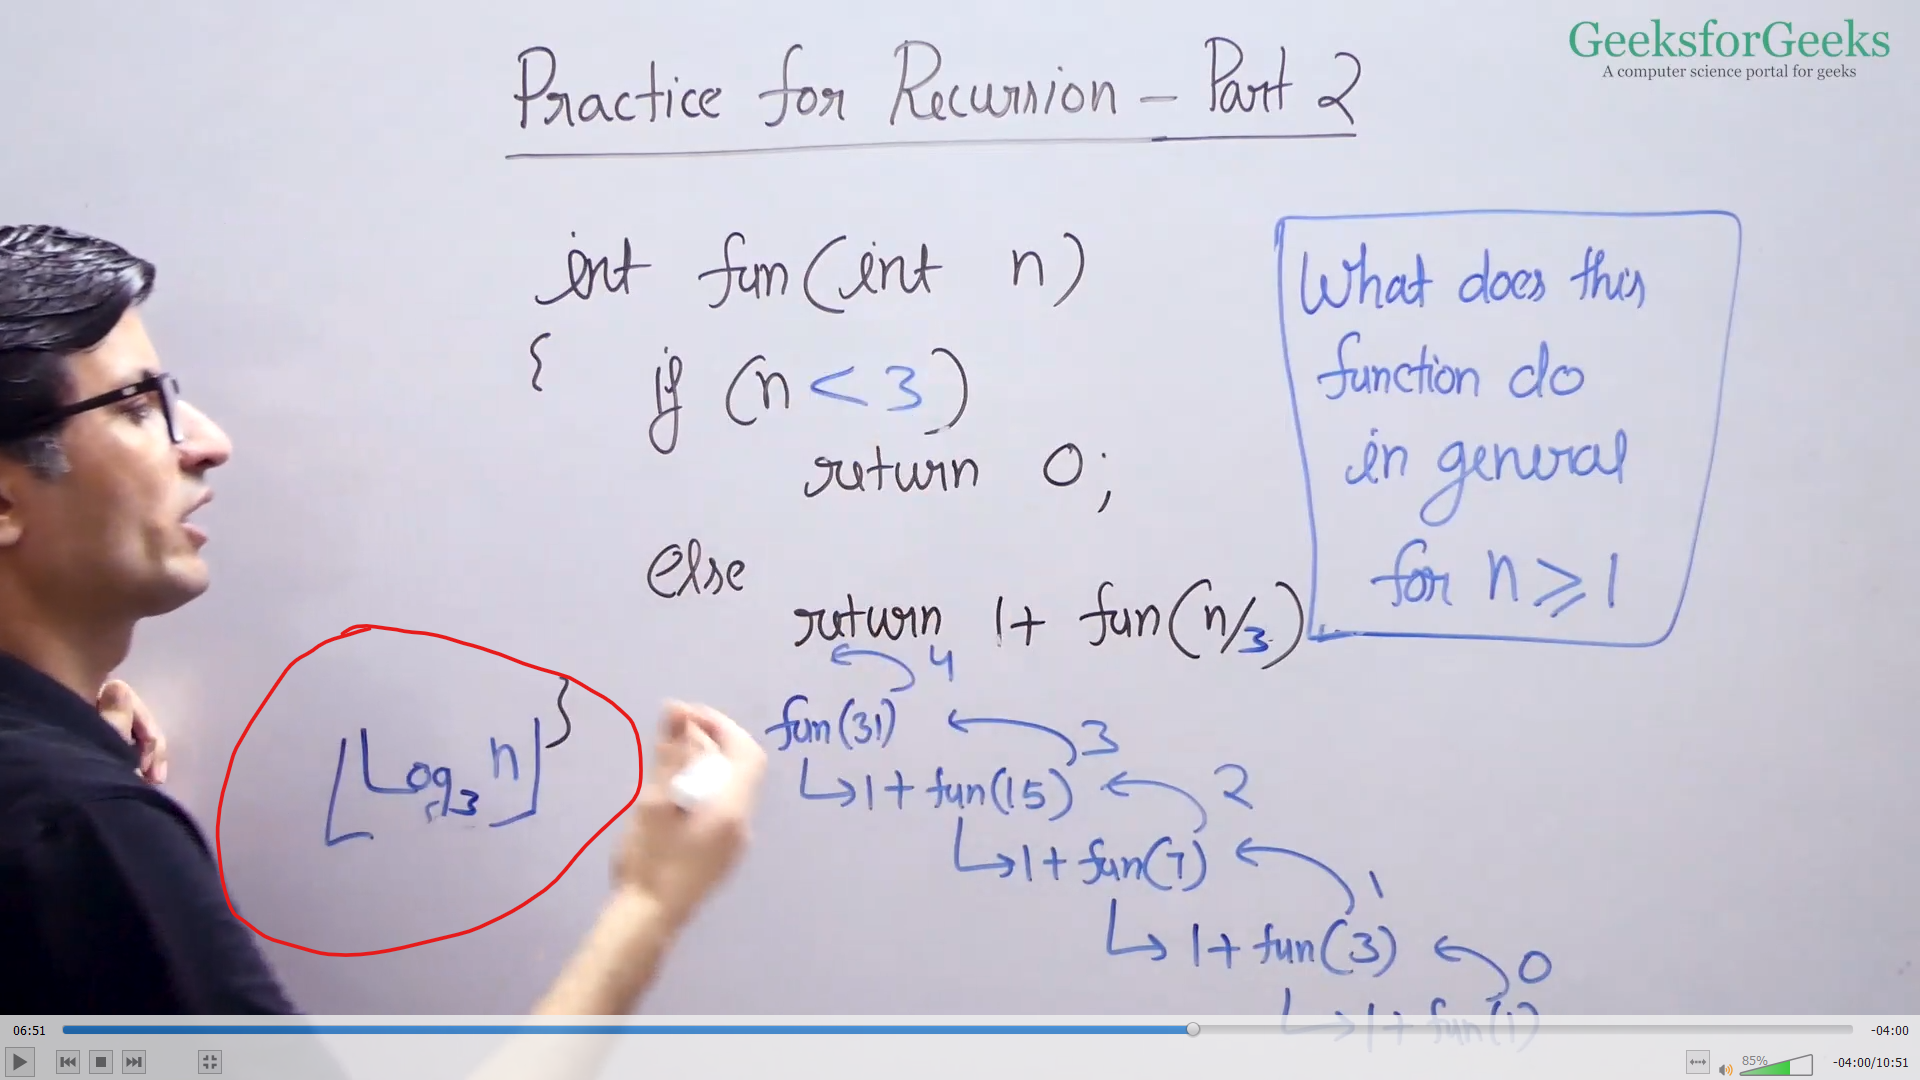 GeeksforGeeks
A computer science portal for geeks
Practice for Recursion – Part 2
int fun(int n)
{
if (n < 3)
return 0;
else
return 1+ fun(n/3)
}
What does this
function do
in general
for n ⩾ 1
⌊Log₃ n⌋
4
fun(31)
3
↳1+ fun(15)
2
↳1+ fun(7)
1
↳1+ fun(3)
0
↳1+ fun(1)
06:51
-04:00
85%
-04:00/10:51